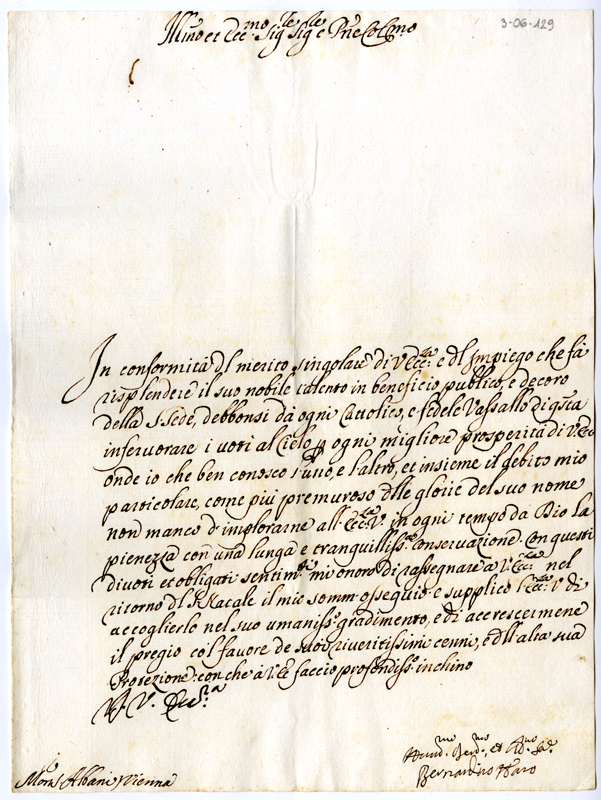 3-06-129
Ill.mo et Ecc.mo Sig.re Sig.re e P.ne Col.mo
In conformità dl merito singolare di V. Ecc.za e dl Impiego che fà
risplendere il suo nobile talento in beneficio publico, e decoro
della S. Sede, debbonsi da ogni Cattolico, e fedele Vassallo di q.sta
infervorare i voti al Cielo p ogni migliore prosperità di V. Ecc.
onde io che ben conosco l'uno, e l'altro, et insieme il debito mio
particolare, come più premuroso dlle glorie del suo nome
non manco d'implorarne all'Ecc.za V. in ogni tempo da Dio la
pienezza con una lunga e tranquilliss.a conservazione. Con questi
divoti et obligati sentim.ti mi onoro di rassegnare a V. Ecc.za nel
ritorno dl S. Natale il mio sommo ossequio e supplico l'Ecc.za V. di
accoglierlo nel suo umaniss.o gradimento, e di accrescermene
il pregio col favore de suoi riveritissimi cenni, e dll'alta sua
Protezione: con che à V. Ecc. faccio profondiss.o inchino
Di V. Ecc.za
Bernardino
Mons.r Albani Vienna